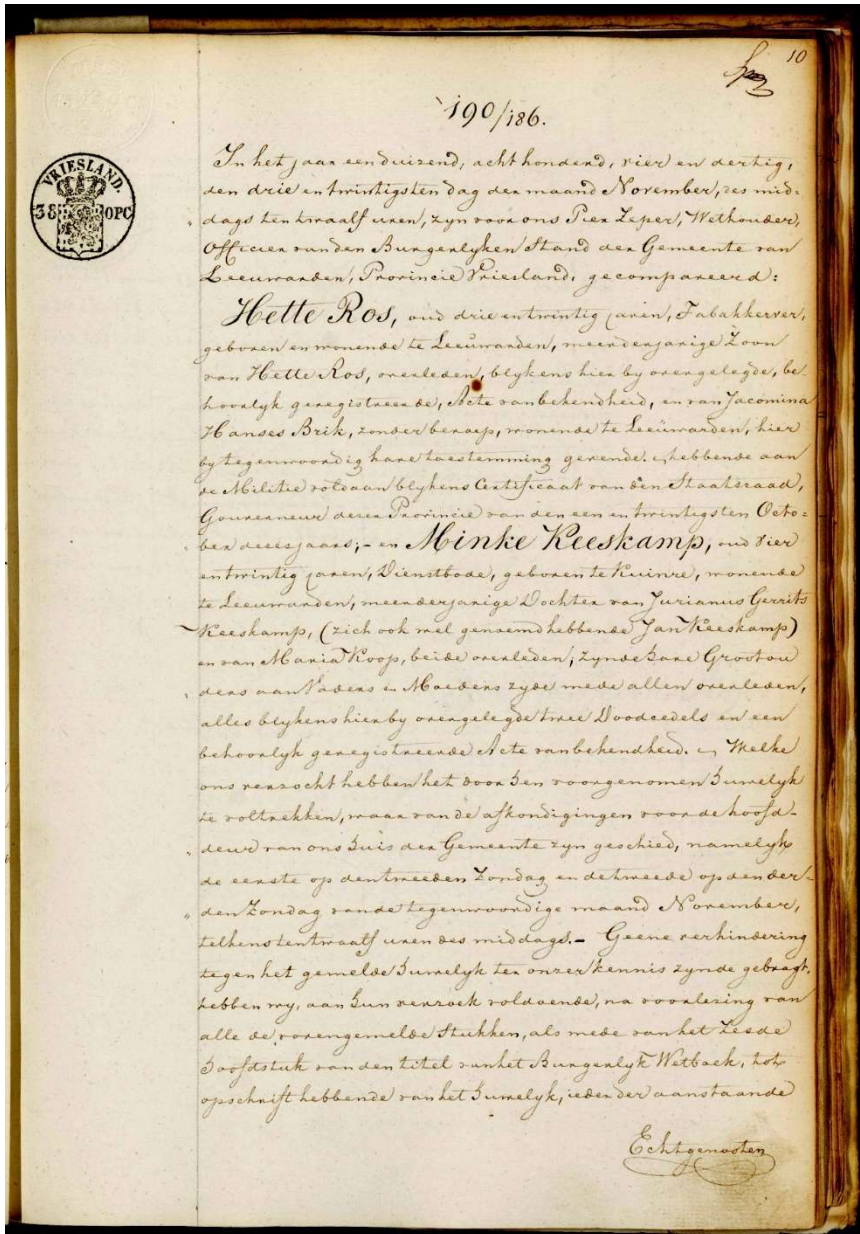 10
190/186.
VRIESLAND.
38 OPC
In het jaar een duizend, acht honderd, vier en dertig,
den drie en twintigsten dag der maand November, des mid-
dags ten twaalf uren, zyn voor ons Pier Zeper, Wethouder,
Officier van den Burgerlyken Stand der Gemeente van
Leeuwarden, Provincie Vriesland, gecompareerd:
Hette Ros, oud drie en twintig jaren, Tabakkerver,
geboren en wonende te Leeuwarden, meerderjarige Zoon
van Hette Ros, overleden, blykens hier by overgelegde, be
hoorlyk geregistreerde, Acte van bekendheid, en van Jacomina
Hanses Brik, zonder beroep, wonende te Leeuwarden, hier
by tegenwoordig hare toestemming gevende. hebbende aan
de Militie voldaan blykens Certificaat van den Staatsraad,
Gouverneur dezer Provincie van den een en twintigsten Octo-
ber dezes jaars; - en Minke Keeskamp, oud vier
en twintig jaren, Dienstbode, geboren te Kuinre, wonende
te Leeuwarden, meerderjarige Dochter van Jurianus Gerrits
Keeskamp, (zich ook wel genoemd hebbende Jan Keeskamp)
en van Maria Koop, beide overleden; zynde hare Grootou
ders aan Vaders en Moeders zyde mede allen overleden,
alles blykens hier by overgelegde twee Doodcedels en een
behoorlyk geregistreerde Acte van bekendheid. Welke
ons verzocht hebben het door hen voorgenomen huwelyk
te voltrekken, waar van de afkondigingen voor de hoofd-
deur van ons huis der Gemeente zyn geschied, namelyk
de eerste op den tweeden Zondag en de tweede op den der-
den Zondag van de tegenwoordige maand November,
telkens ten twaalf uren des middags. - Geene verhindering
tegen het gemelde huwelyk ter onzer kennis zynde gebragt,
hebben wy, aan hun verzoek voldoende, na voorlezing van
alle de vorengemelde Stukken, als mede van het Zesde
hoofdstuk van den titel van het Burgerlyk Wetboek, tot
opschrift hebbende van het huwelyk, ieder der aanstaande
Echtgenooten